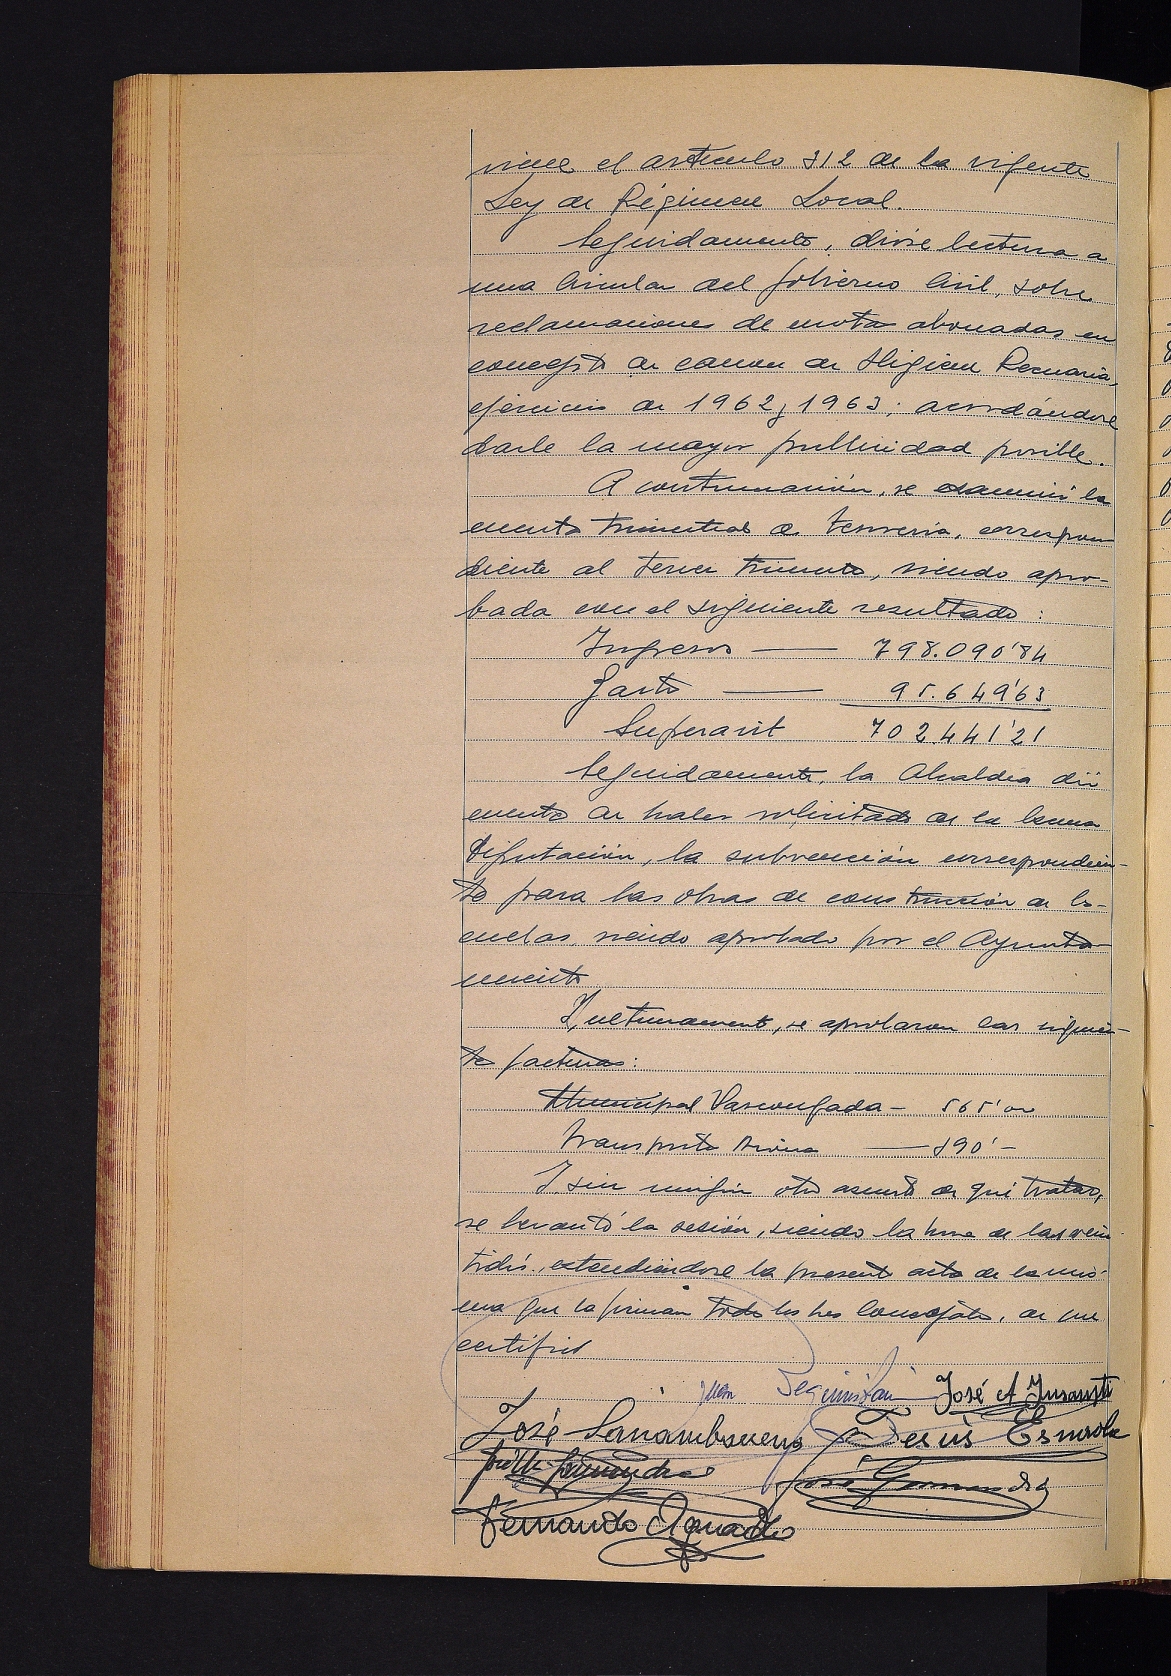 viene el artículo 312 de la vigente
Ley de Régimen Local.
Seguidamente, dióse lectura a
una Circular del Gobierno Civil, sobre
reclamaciones de cuotas abonadas en
concepto de canon de Higiene Pecuaria,
ejercicio de 1962 y 1963; acordándose
darle la mayor publicidad posible.
A continuación, se examinó la
cuenta trimestral de Tesorería, correspon
diente al tercer trimestre, siendo apro-
bada con el siguiente resultado:
Ingresos — 798.090'84
Gastos — 95.649'63
Superavit 702.441'21
Seguidamente, la Alcaldía dió
cuenta de haber solicitado de la Excma
Diputación, la subvención correspondien-
te para las obras de construcción de Es-
cuelas, siendo aprobado por el Ayunta
miento
Y, ultimamente, se aprobaron las siguien-
tes facturas:
Municipal Vascongada - 565'00
Transportes — 890'-
Y sin ningún otro asunto de qué tratar,
se levantó la sesión, siendo la hora de las vein-
tidós, extendiéndose la presente acta de la mis-
ma que la firman todos los Sres Concejales, de que
certifico
José A Insausti
José Jesús Esnaola
José
Fernando